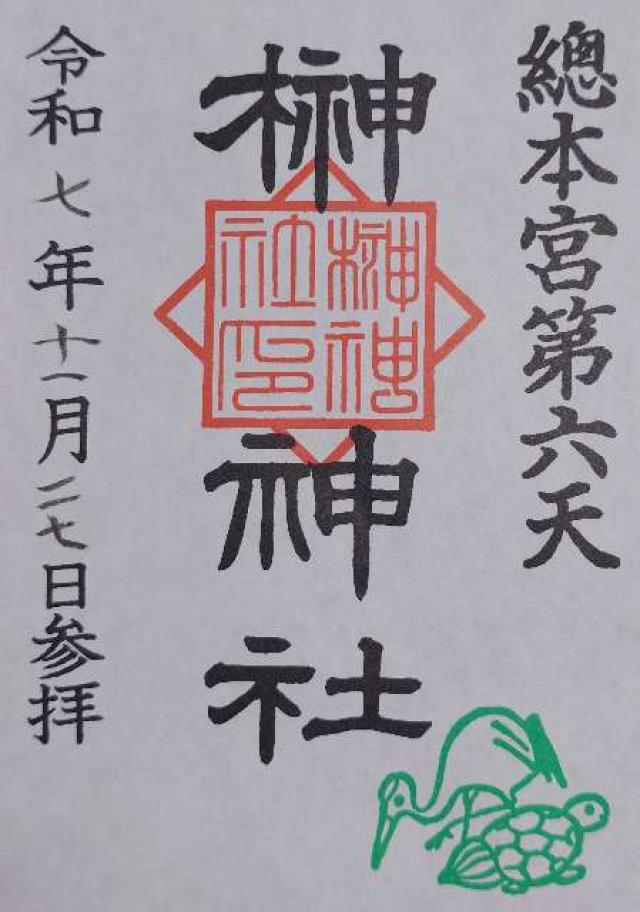 總本宮第六天
榊神社
榊神社印
令和七年十一月二七日参拝